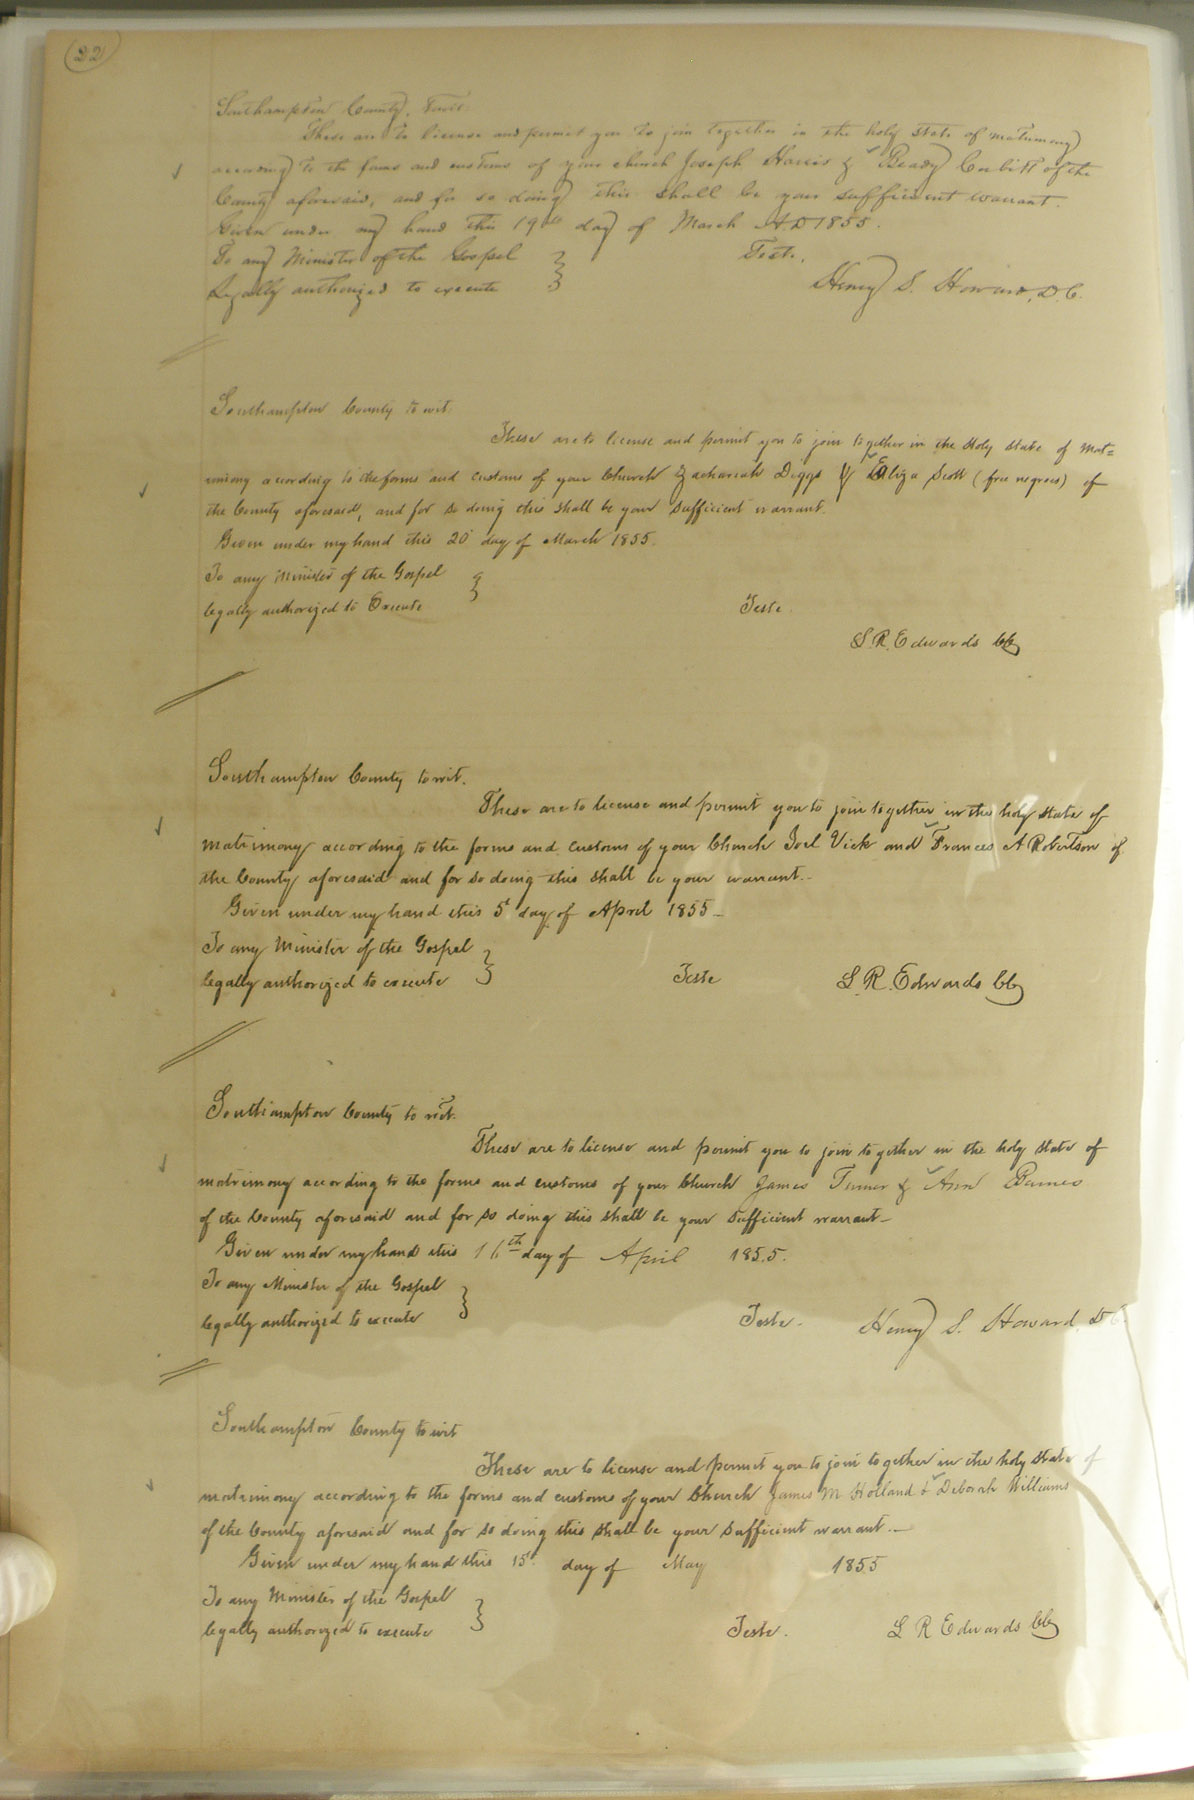 22
Southampton County, Towit.
These are to license and permit you to join together in the holy state of matrimony
according to the forms and customs of your church Joseph Harris & Beady Corbitt of the
County aforesaid, and for so doing this shall be your sufficient warrant.
Given under my hand this 19th day of March A.D 1855.
To any Minister of the Gospel
Teste.
Legally authorized to execute
Henry S. Howard, D.C.
Southampton County to wit.
These are to license and permit you to join together in the Holy state of Mat=
rimony according to the forms and customs of your Church Zachariah Diggs & Eliza Scott (free negroes) of
the County aforesaid, and for so doing this shall be your sufficient warrant.
Given under my hand this 20 day of March 1855.
To any Minister of the Gospel
legally authorized to Execute
Teste.
L. R. Edwards CC
Southampton County to wit.
These are to license and permit you to join together in the holy state of
matrimony according to the forms and customs of your Church Joel Vick and Frances A Robertson of
the County aforesaid and for so doing this shall be your warrant.-
Given under my hand this 5t day of April 1855-
To any Minister of the Gospel
legally authorized to execute
Teste L. R. Edwards CC
Southampton County to wit.
These are to license and permit you to join together in the holy state of
matrimony according to the forms and customs of your Church James Turner & Ann Barnes
of the County aforesaid and for so doing this shall be your sufficient warrant-
Given under my hand this 16th day of April 1855.
To any Minister of the Gospel
legally authorized to execute
Teste. Henry S. Howard, D C.
Southampton County to wit
These are to license and permit you to join together in the holy state of
matrimony according to the forms and customs of your Church James M Holland & Deborah Williams
of the County aforesaid and for so doing this shall be your sufficient warrant.-
Given under my hand this 15t day of May 1855
To any Minister of the Gospel
legally authorized to execute
Teste. L R Edwards CC